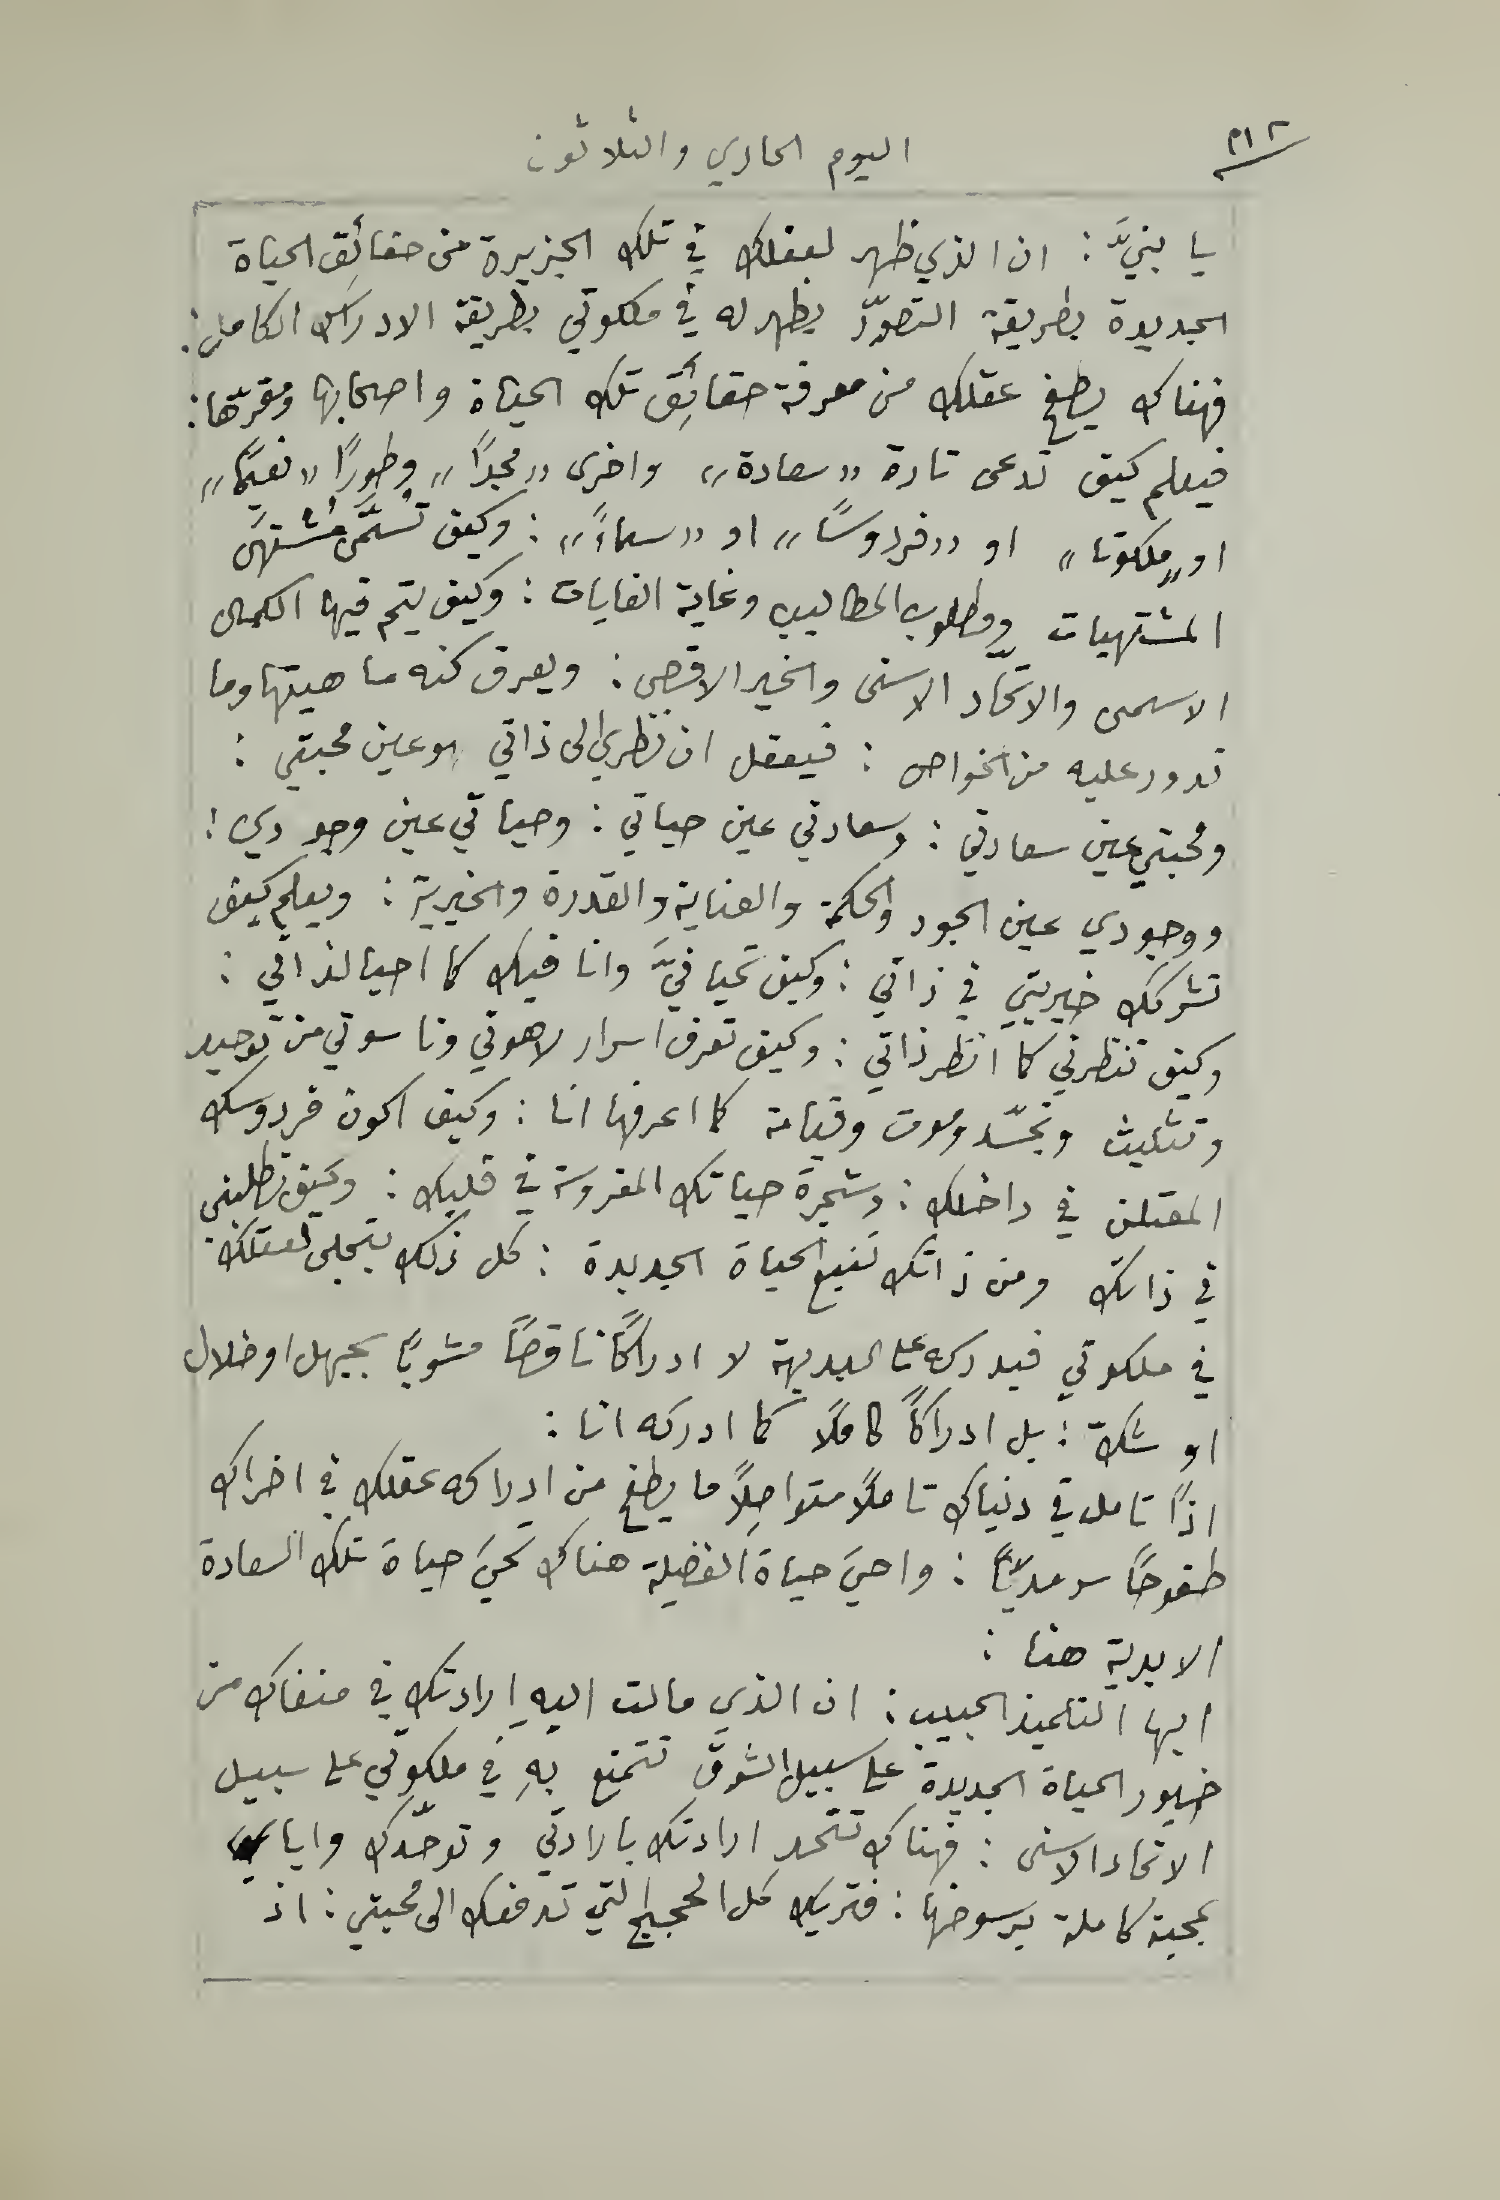 ٣١٢
اليوم الحادي والثلاثون
يا بنيَّ : ان الذي ظهر لعقلك في تلك الجزيرة من حقائق الحياة
الجديدة بطريقة التصوّر يظهر له في ملكوتي بطريقة الادراك الكامل :
فهناك يطفح عقلك من معرفة حقائق تلك الحياة واصحابها ومقرّها :
فيعلم كيف تدعى تارة «سعادة» واخرى «مجدًا» وطورًا «نعيمًا»
او «ملكوتا» او «فردوسًا» او «سماءً» : وكيف تُسمَّى مُشتهَى
المشتهيات ومطلوب المطاليب وغاية الغايات : وكيف يتم فيها الكمال
الاسمى والاتّحاد الاسنى والخير الاقصى : ويعرف كنه ماهيتها وما
تدور عليه من الخواص : فيعقل ان نظري الى ذاتي هو عين محبتي :
ومحبتي عين سعادتي : وسعادتي عين حياتي : وحياتي عين وجودي :
ووجودي عين الجود والحكمة والعناية والقدرة والخيرية : ويعلم كيف
تشركك خيريتي في ذاتي : وكيف تحيا فيَّ وانا فيك كما احيا لذاتي :
وكيف تنظرني كما انظر ذاتي : وكيف تعرف اسرار لاهوتي وناسوتي من توحيد
وتثليث وتجسّد وموت وقيامة كما اعرفها انا : وكيف اكون فردوسك
المعتلن في داخلك : وشجرة حياتك المغروسة في قلبك : وكيف تطلبني
في ذاتك ومن ذاتك تنبع الحياة الجديدة : كل ذلك يتجلى لعقلك
في ملكوتي فيدركه على البديهة لا ادراكًا ناقصًا مشوبًا بجهل او ضلال
او شكّ : بل ادراكًا كاملًا كما ادركه انا :
اذًا تامل في دنياك تاملًا متواصِلًا ما يطفح من ادراكه عقلك في اخراك
طفوحًا سرمديًّا : واحيَ حياة الفضيلة هناك تحيَ حياة تلك السعادة
الابدية هنا :
ايها التلميذ الحبيب : ان الذي مالت اليهِ ارادتك في منفاك من
خيور الحياة الجديدة على سبيل الشوق تتمتع بهِ في ملكوتي على سبيل
الاتحاد الاسنى : فهناك تتّحد ارادتك بارادتي وتوحّدك واياي
بمحبة كاملة برسوخها : فتريك كل الحجج التي تدفعك الى محبتي : اذ